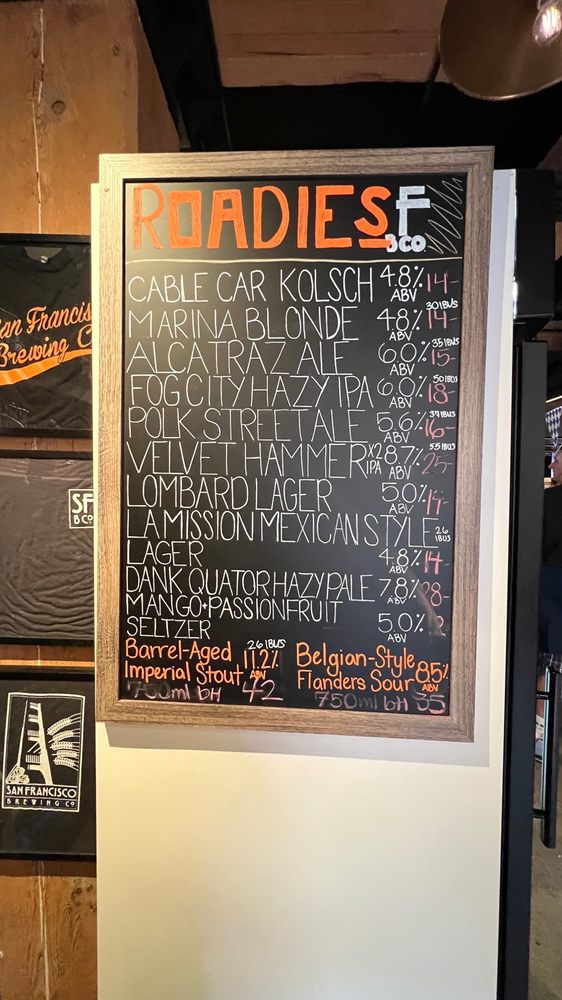 ROADIES SF
B CO.
CABLE CAR KOLSCH 4.8% ABV 14-
MARINA BLONDE 4.8% ABV 30 IBUS 14-
ALCATRAZ ALE 6.0% ABV 35 IBUS 15-
FOG CITY HAZY IPA 6.0% ABV 50 IBUS 18-
POLK STREET ALE 5.6% ABV 37 IBUS 16-
VELVET HAMMER X2 IPA 8.7% ABV 55 IBUS 25-
LOMBARD LAGER 5.0% ABV
LA MISSION MEXICAN STYLE 26 IBUS
LAGER 4.8% ABV 14-
DANK QUATOR HAZY PALE 7.8% ABV 28-
MANGO+PASSIONFRUIT
SELTZER 5.0% ABV
Barrel-Aged 26 IBUS
Imperial Stout 11.2% ABV
750ml btl 42
Belgian-Style
Flanders Sour 8.5% ABV
750ml btl 35
San Francis
Brewing C
SF
B CO
SAN FRANCISCO
BREWING CO